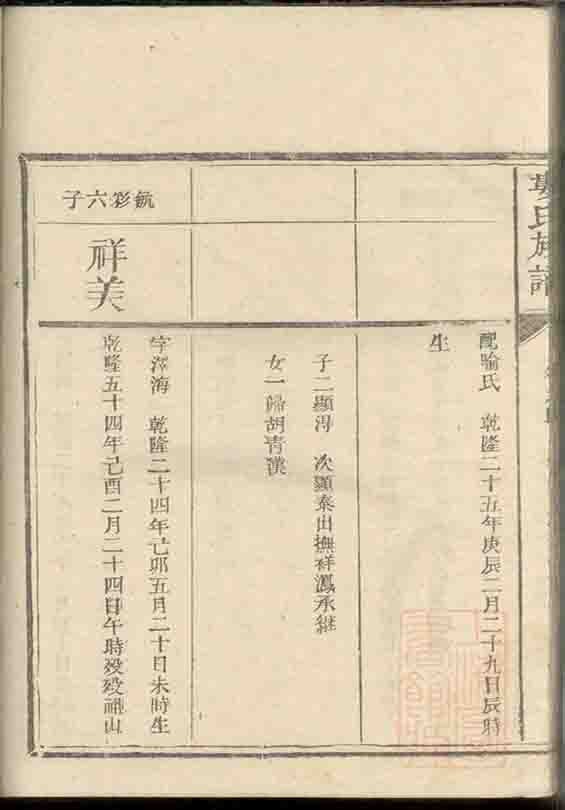 氏族譜
配喻氏 乾隆二十五年庚辰二月二十九日辰時
生
子二顯得 次顯泰出撫祥鳳承繼
女一歸胡青漢
毓彩六子
祥美
字澤海 乾隆二十四年己卯五月二十日未時生
乾隆五十四年己酉二月二十四日午時歿歿 山